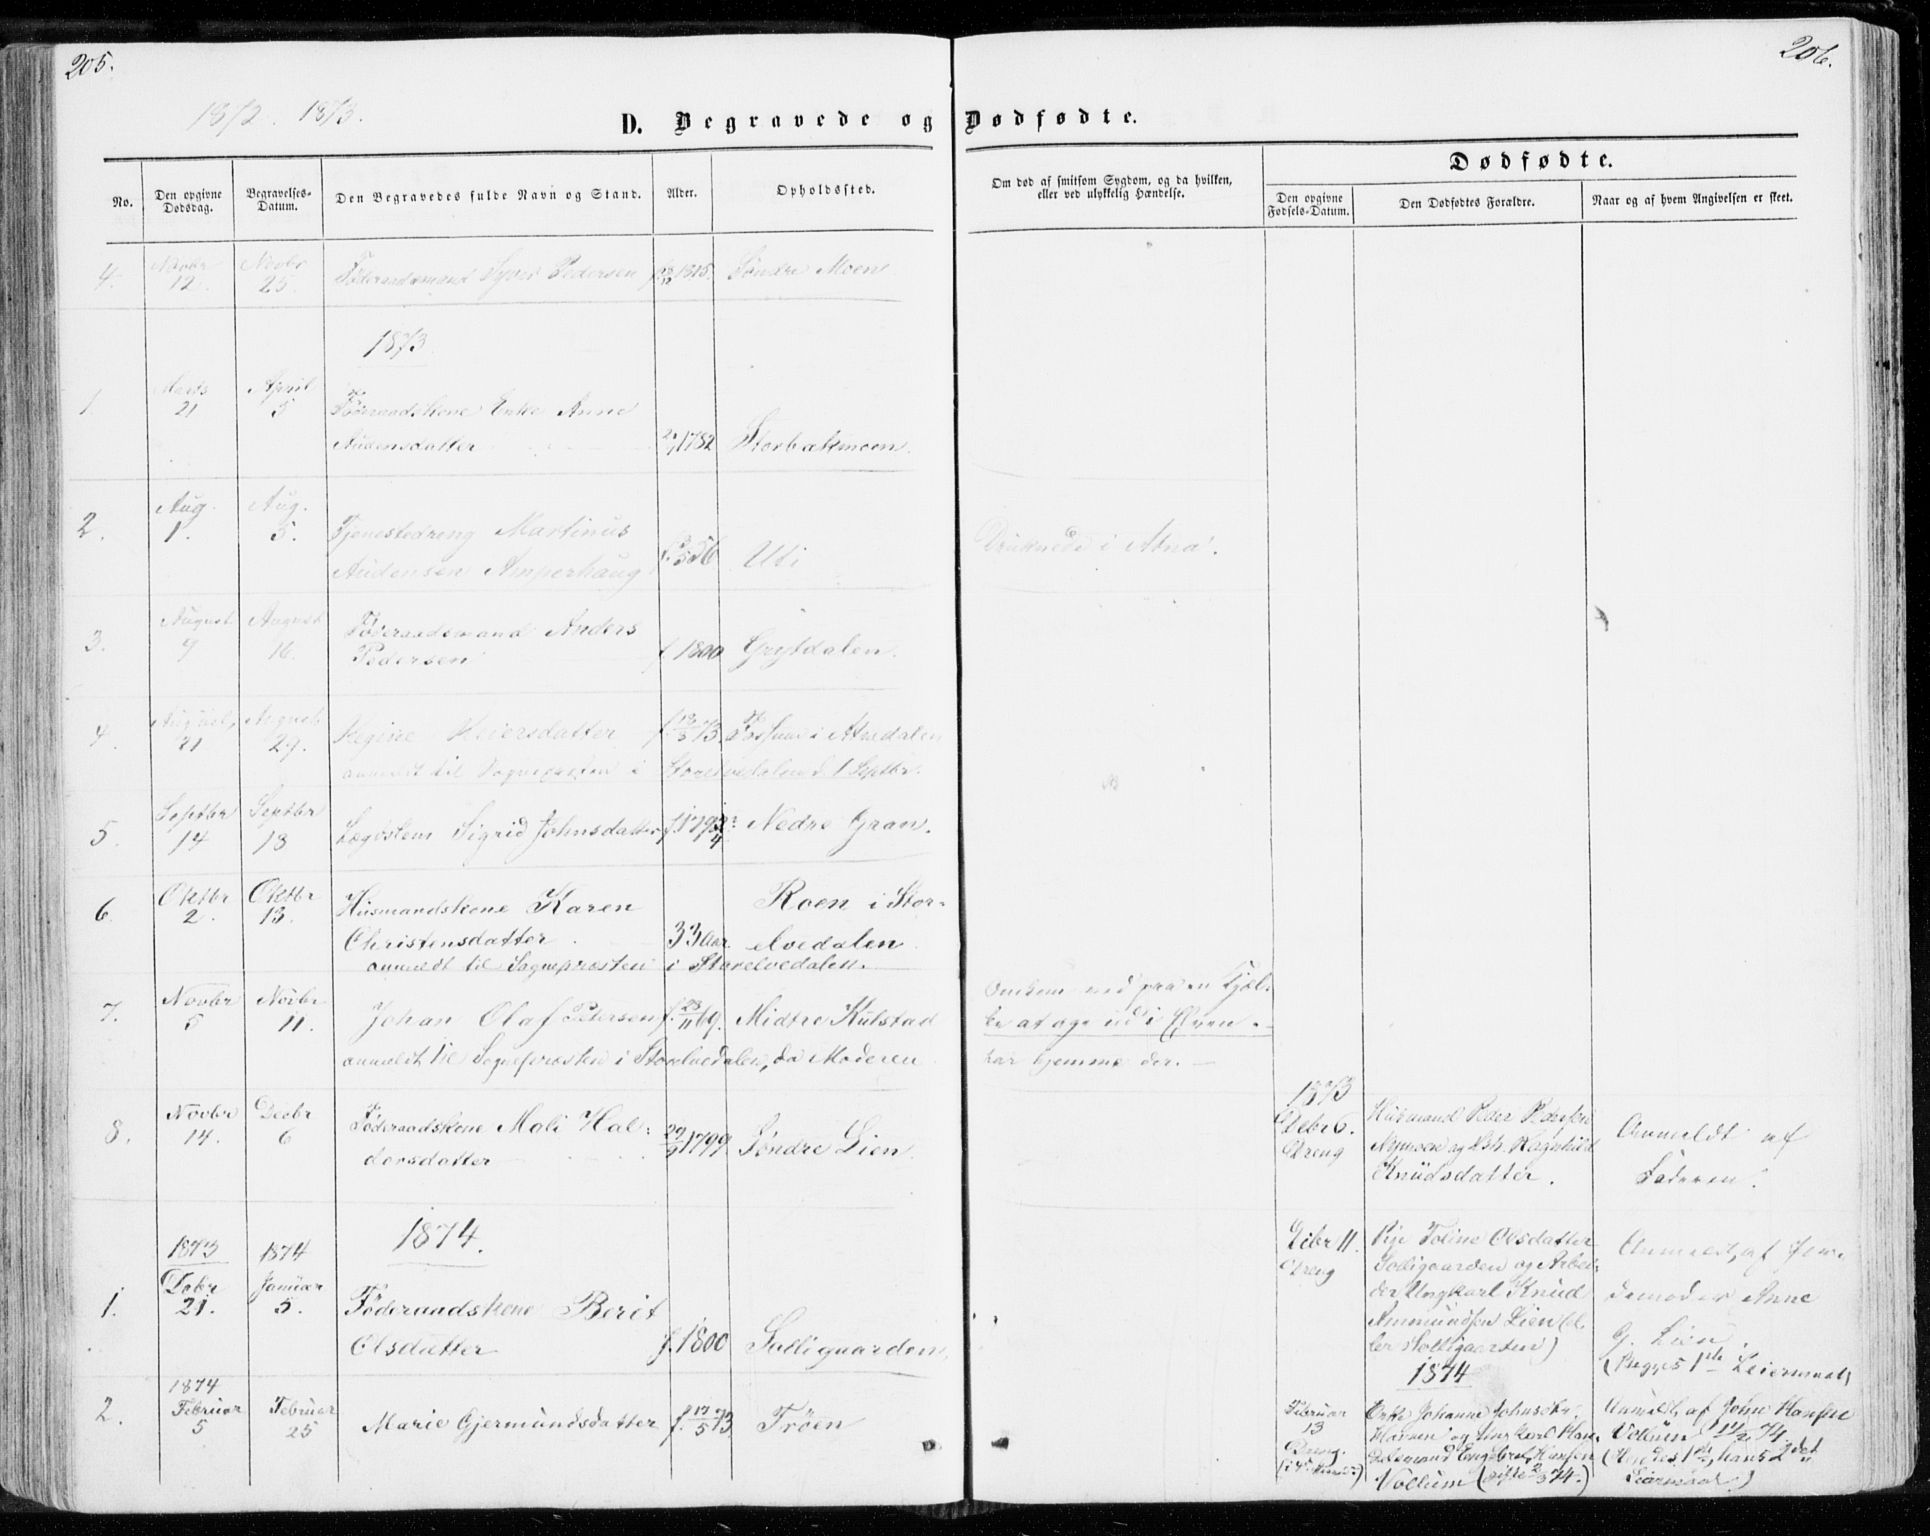 205.
206.
1872. 1873.
D. Begravede og Dødfødte.
No.
Den opgivne Dødsdag.
Begravelses-Datum.
Den Begravedes fulde Navn og Stand.
Alder.
Opholdssted.
Om død af smitsom Sygdom, og da hvilken,
eller ved ulykkelig Hændelse.
Dødfødte.
Den opgivne Fødsels-Datum.
Den Dødfødtes Forældre.
Naar og af hvem Angivelsen er skeet.
4. Novbr 12. Novbr 25. Føderaadsmand Syver Pedersen 1815. Søndre Moen
1873
1 Marts 21 April 5 Føderaadskone Enke Anne
Audensdatter 1782 Storbækmoen.
2. Aug. 1. Aug. 5. Tjenestedreng Martinus
Audensen Amperhaug 56 Uti
Druknede i Atna.
3. August 9 August 16. Føderaadsmand Anders
Pedersen f. 1800 Grytdalen.
4. August 21 August 29. Regine Reiersdatter 73. Fossum i Atnedalen
anmeldt til Sognepresten i Storelvedalen d. 1 Septbr.
5. Septbr 14 Septbr 13 Lægdslem Sigrid Johnsdatter Nedre Gran.
6. Oktbr 2. Oktbr 13. Husmandskone Karen Roen i Stor-
Christensdatter 33 Aar. elvedalen.
anmeldt til Sognepresten i Storelvedalen.
7. Novbr 5 Novbr 11. Johan Olaf Petersen f. 23/11 69. Midtre Kulstad
anmeldt til Sognepræsten i Storelvedalen, da Moderen
Omkom ved paa en Kjæl-
ke at age ud i Elven.
har hjemme der.
8. Novbr 14. Decbr 6 Føderaadskone Mali Hal-
dorsdatter 1799 Søndre Lien.
1873
Debr 6. Dreng
Husmand Peder Pedersen
Nymoen og Hst. Ragnhild
Knudsdatter.
Anmeldt af
Faderen.
1874.
1. 1873 Debr 21. 1874 Januar 5. Føderaadskone Berit
Olsdatter f. 1800 Solliguarden
Debr 11. Dreng
Pige Toline Olsdatter
Solligaarden og Arbei-
der Ungkarl Knud
Ammundsen Lien (el-
ler Solligaarden)
Anmeldt, af Jor-
demoder Anne
G. Lien.
(Begges 1ste Leiermaal)
1874
2. 1874 Februar 5 Februar 25 Marie Gjermundsdatter f. 17/5 73 Trøen
Februar 13 Dreng.
Enke Johanne Johnsdtr.
og Ungkarl Han-
delsmand Engebret Hansen
Vollum
Anmeldt, af John Hansen
Vollum 74
(Hendes 1ste, hans 2det
Leiermaal)